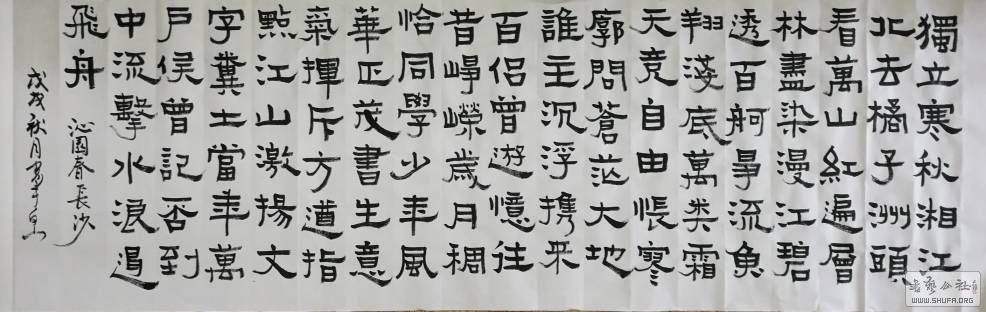 獨立寒秋湘江
北去橘子洲頭
看萬山紅遍層
林盡染漫江碧
透百舸爭流魚
翔淺底萬类霜
天竟自由悵寒
廓問蒼茫大地
誰主沉浮携来
百侶曾游憶往
昔崢嶸歲月稠
恰同學少年風
華正茂書生意
氣揮斥方遒指
點江山激揚文
字糞土當年萬
戶侯曾記否到
中流擊水浪遏
飛舟
沁園春長沙
戊戌秋月書于
书艺公社
WWW.SHUFA.ORG